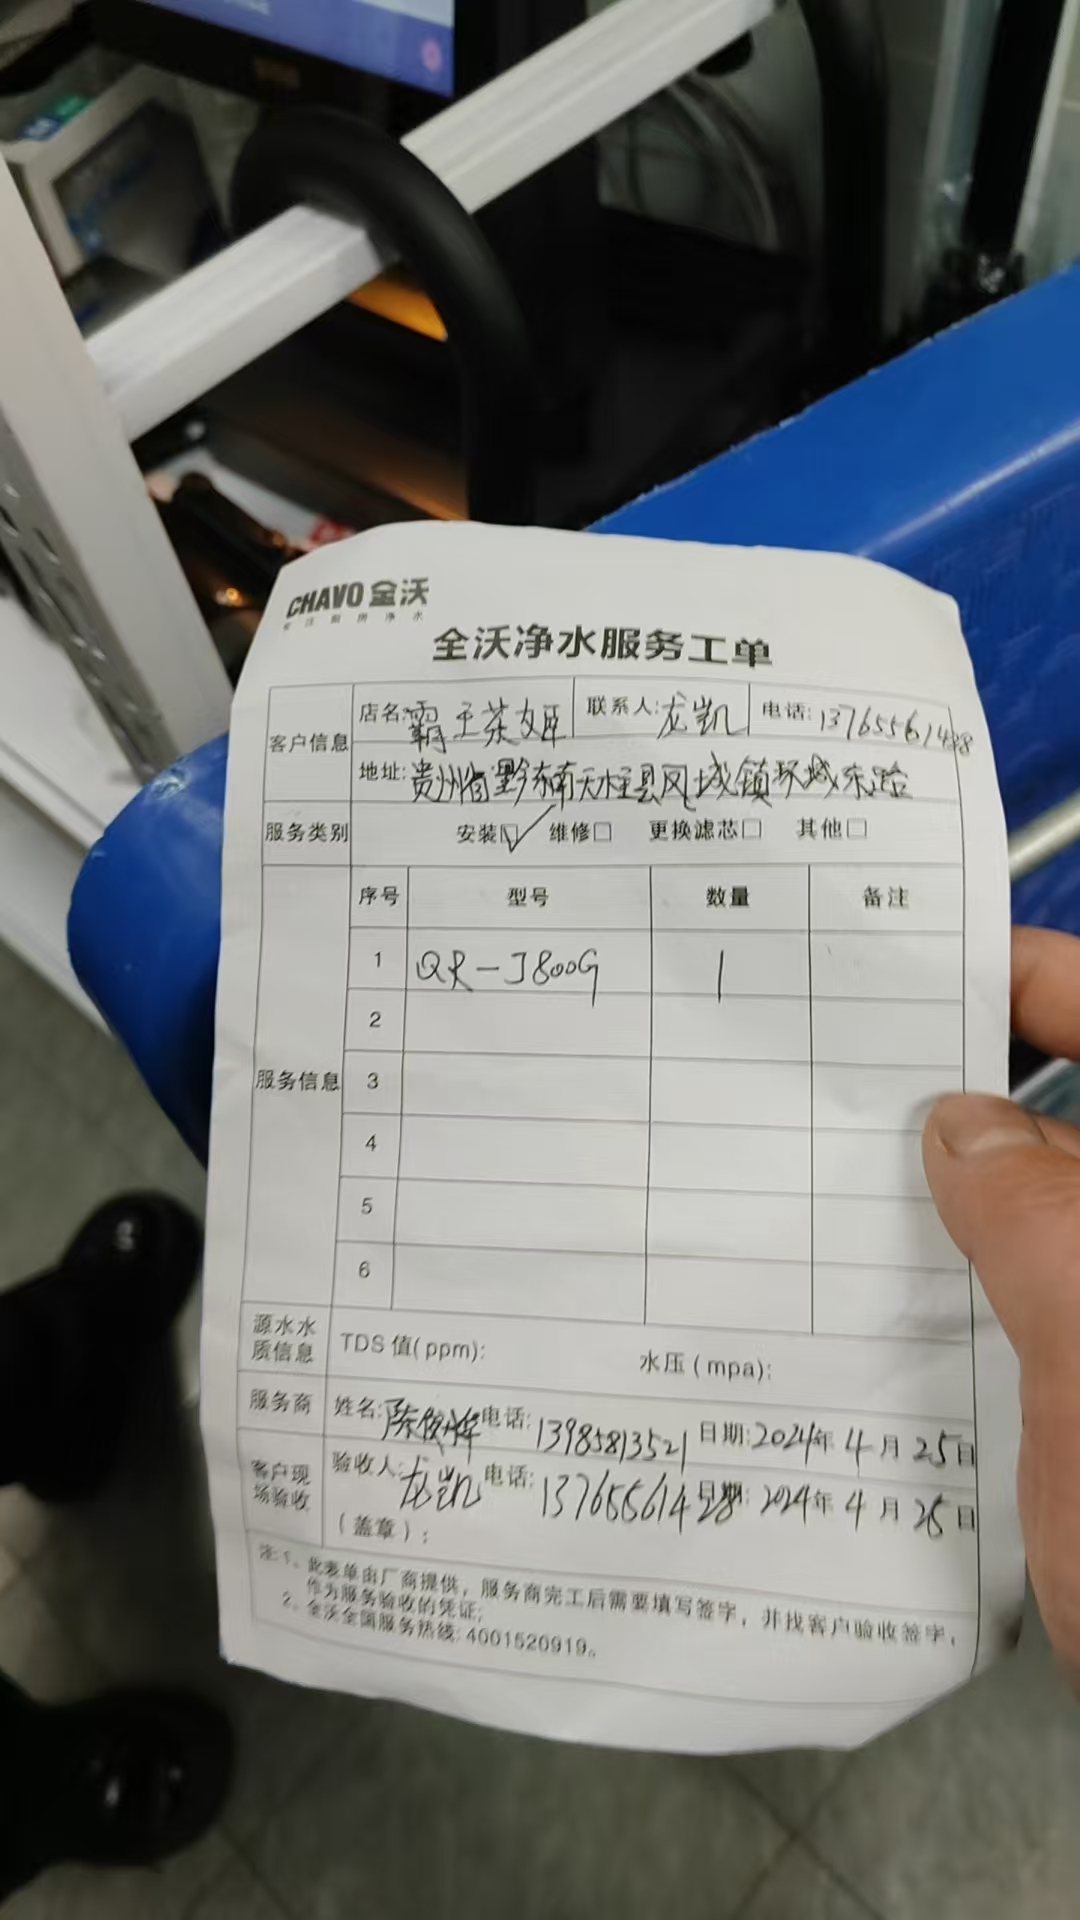 CHAVO 金沃
专注厨房净水
全沃净水服务工单
客户信息 店名: 霸王茶姬 联系人: 龙凯 电话: 13765561428
地址: 贵州省黔东南天柱县凤城镇环城东路
服务类别 安装☑ 维修□ 更换滤芯□ 其他□
服务信息 序号 型号 数量 备注
1 QR-J800G 1
2
3
4
5
6
源水水质信息 TDS 值(ppm): 水压(mpa):
服务商 姓名: 陈俊烽 电话: 13985813521 日期: 2024年 4月 25日
客户现场验收 验收人: 龙凯 电话: 13765561428 日期: 2024年 4月 25日
(盖章):
注:1、此表单由厂商提供,服务商完工后需要填写签字,并找客户验收签字,
作为服务验收的凭证;
2、全沃全国服务热线:4001520919。